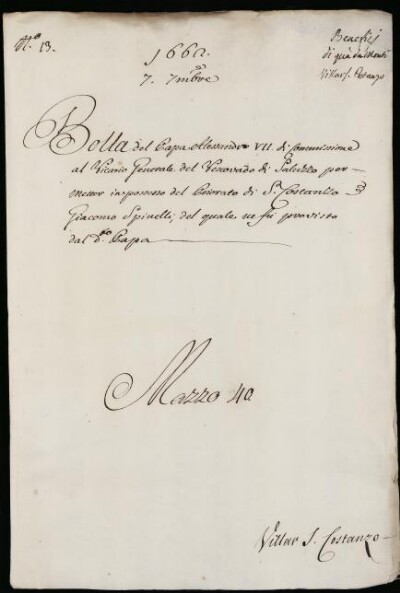 N.º 13.
Benefizj
di quà da Monti
Villar S. Costanzo
1662.
7. 7mbre
Bolla del Papa Alessandro VII. di Commissione
al Vicario Generale del Vescovado di Saluzzo per
metter in possesso del Priorato di S. Costanzo
Giacomo Spinelli, del quale ne fù provvisto
dal d.º Papa
Mazzo 40
Villar S. Costanzo